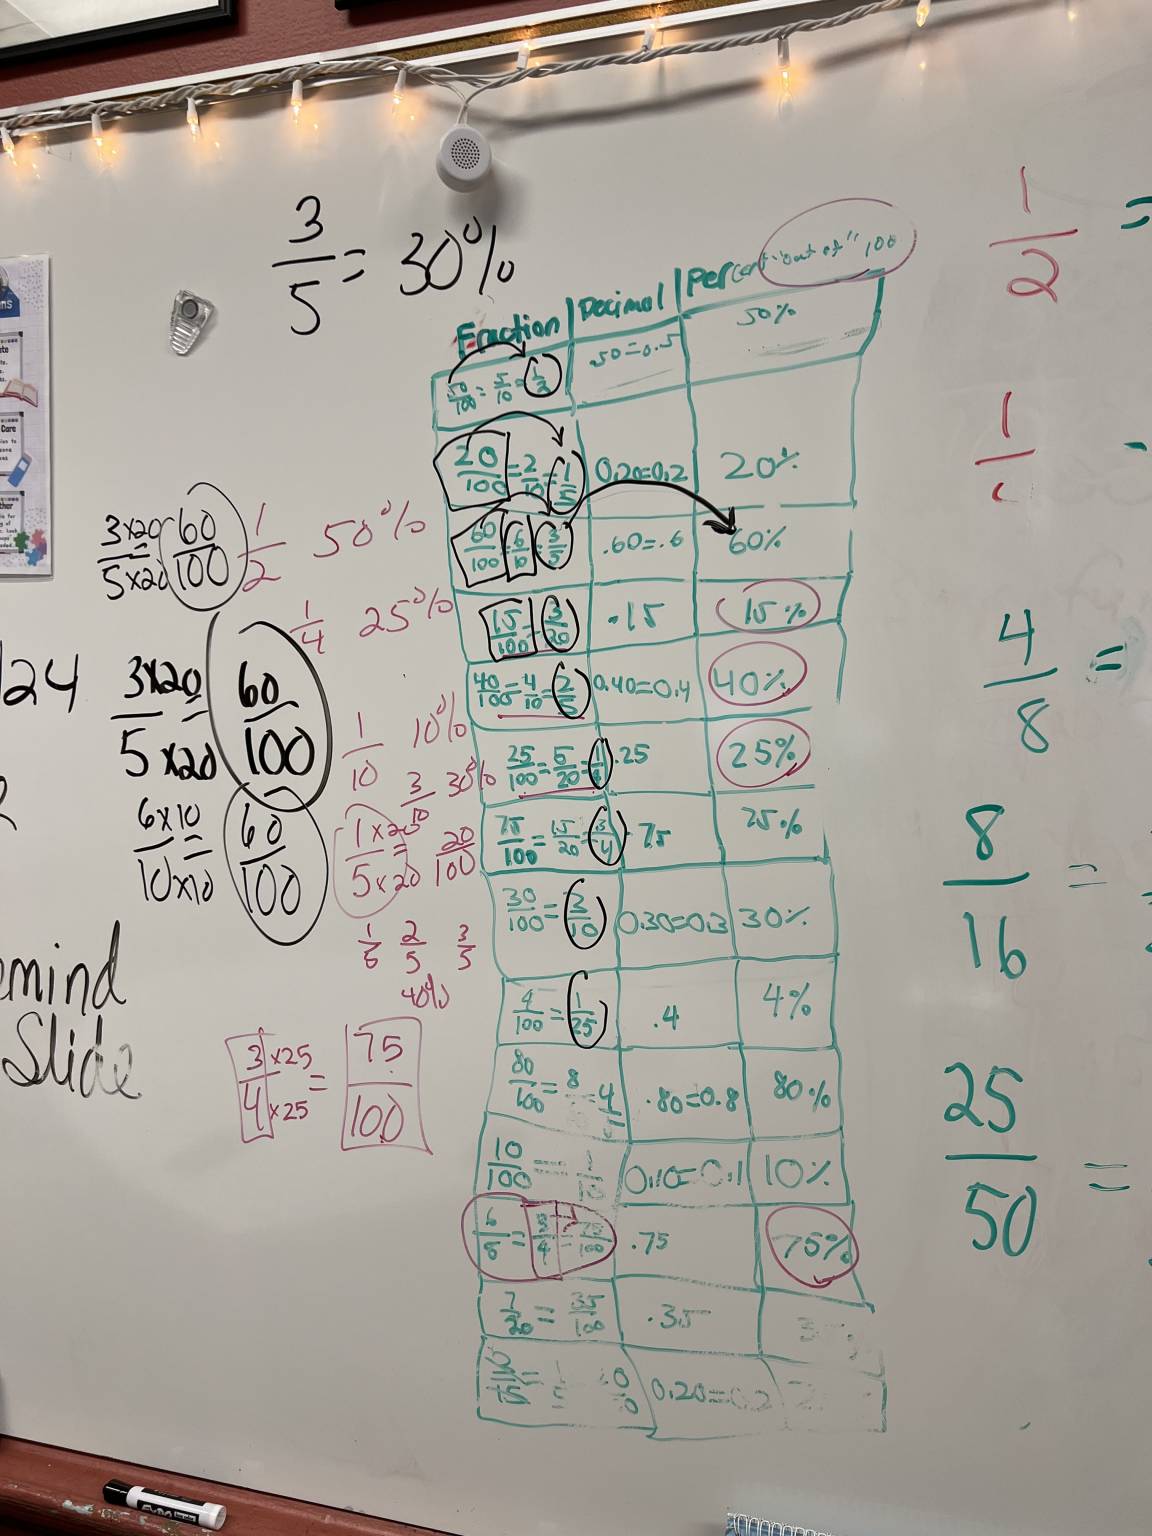 3/5 = 30%
Fraction | Decimal | Percent "out of" 100
50/100 = 5/10 = 1/2 | .50=0.5 | 50%
20/100 = 2/10 = 1/5 | 0.20=0.2 | 20%
60/100 = 6/10 = 3/5 | .60=.6 | 60%
15/100 = 3/20 | .15 | 15%
40/100 = 4/10 = 2/5 | 0.40=0.4 | 40%
25/100 = 5/20 = 1/4 | .25 | 25%
75/100 = 15/20 = 3/4 | .75
30/100 = 3/10 | 0.30=0.3 | 30%
4/100 = 1/25 | .4 | 4%
80/100 = 8 = 4 | .80=0.8 | 80%
10/100 = | 0.10=0.1 | 10%
6/8 = 3/4 = 75/100 | .75 | 75%
7/20 = 35/100 | .35
0.20=0.2
3x20/5x20 = 60/100
1/2 50%
1/4 25%
24
3x20/5x20 = 60/100
1/10 10%
3/10 30%
6x10/10x10 = 60/100
1x20/5x20 = 20/100
1/5 2/5 3/5
40%
Slide
3x25/4x25 = 75/100
1/2 =
4/8 =
8/16 =
25/50 =
Care